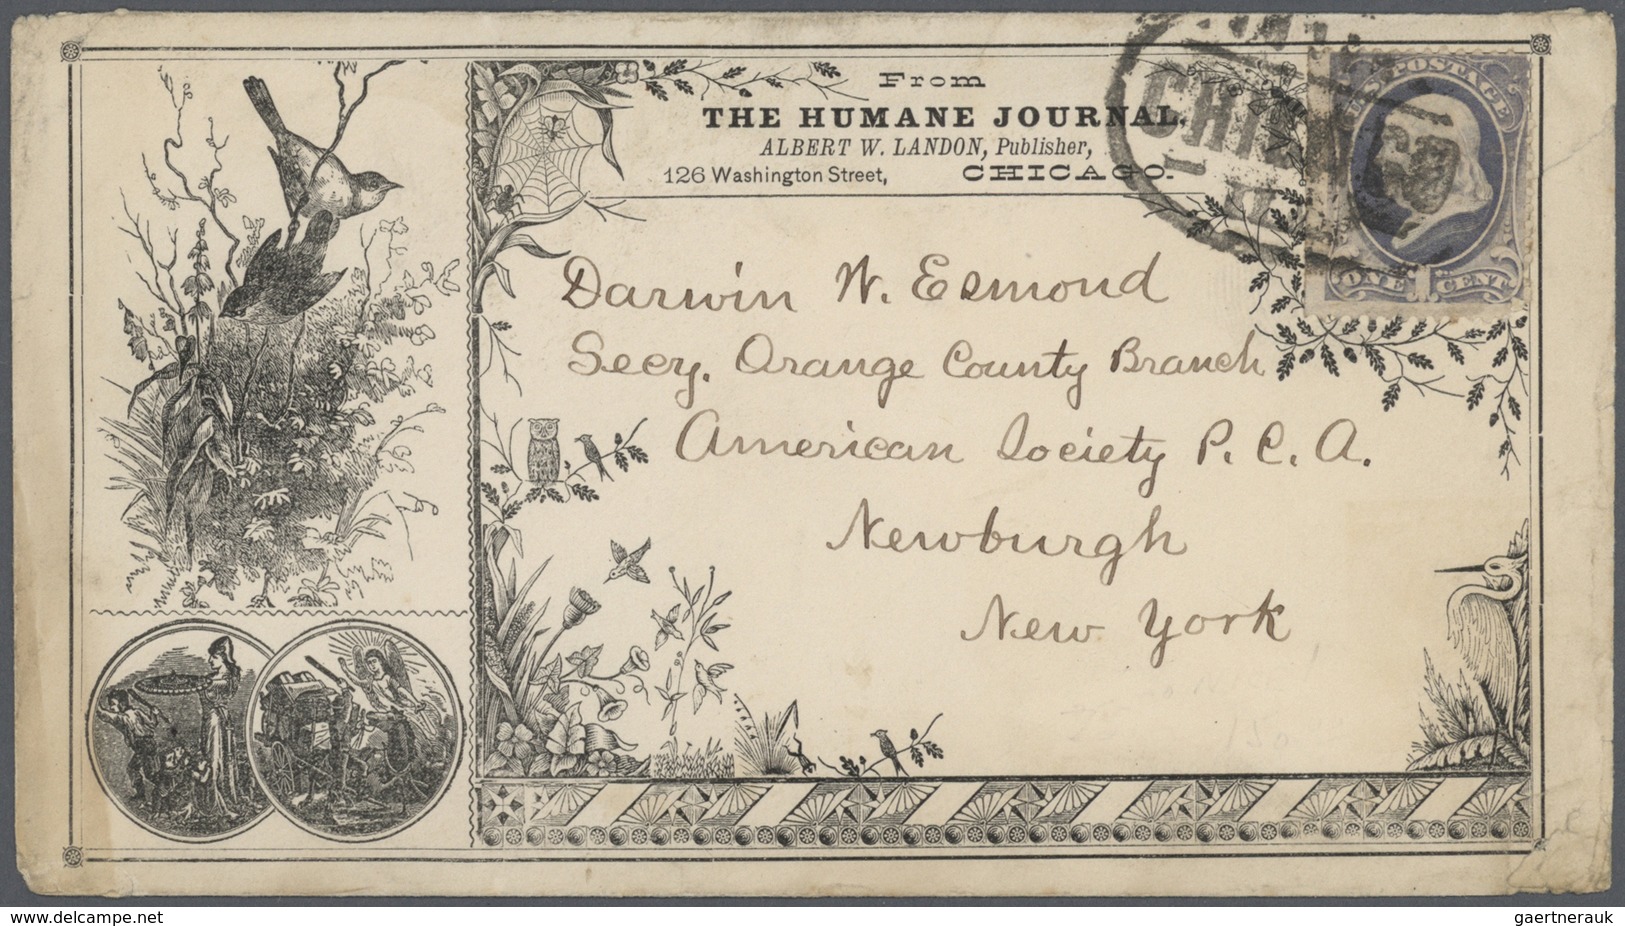 From
THE HUMANE JOURNAL.
ALBERT W. LANDON, Publisher,
126 Washington Street, CHICAGO.
U.S. POSTAGE
ONE 1 CENT
Darwin W. Esmond
Secy. Orange County Branch
American Society P. C. A.
Newburgh
New York
www.delcampe.net
gaertnerauk